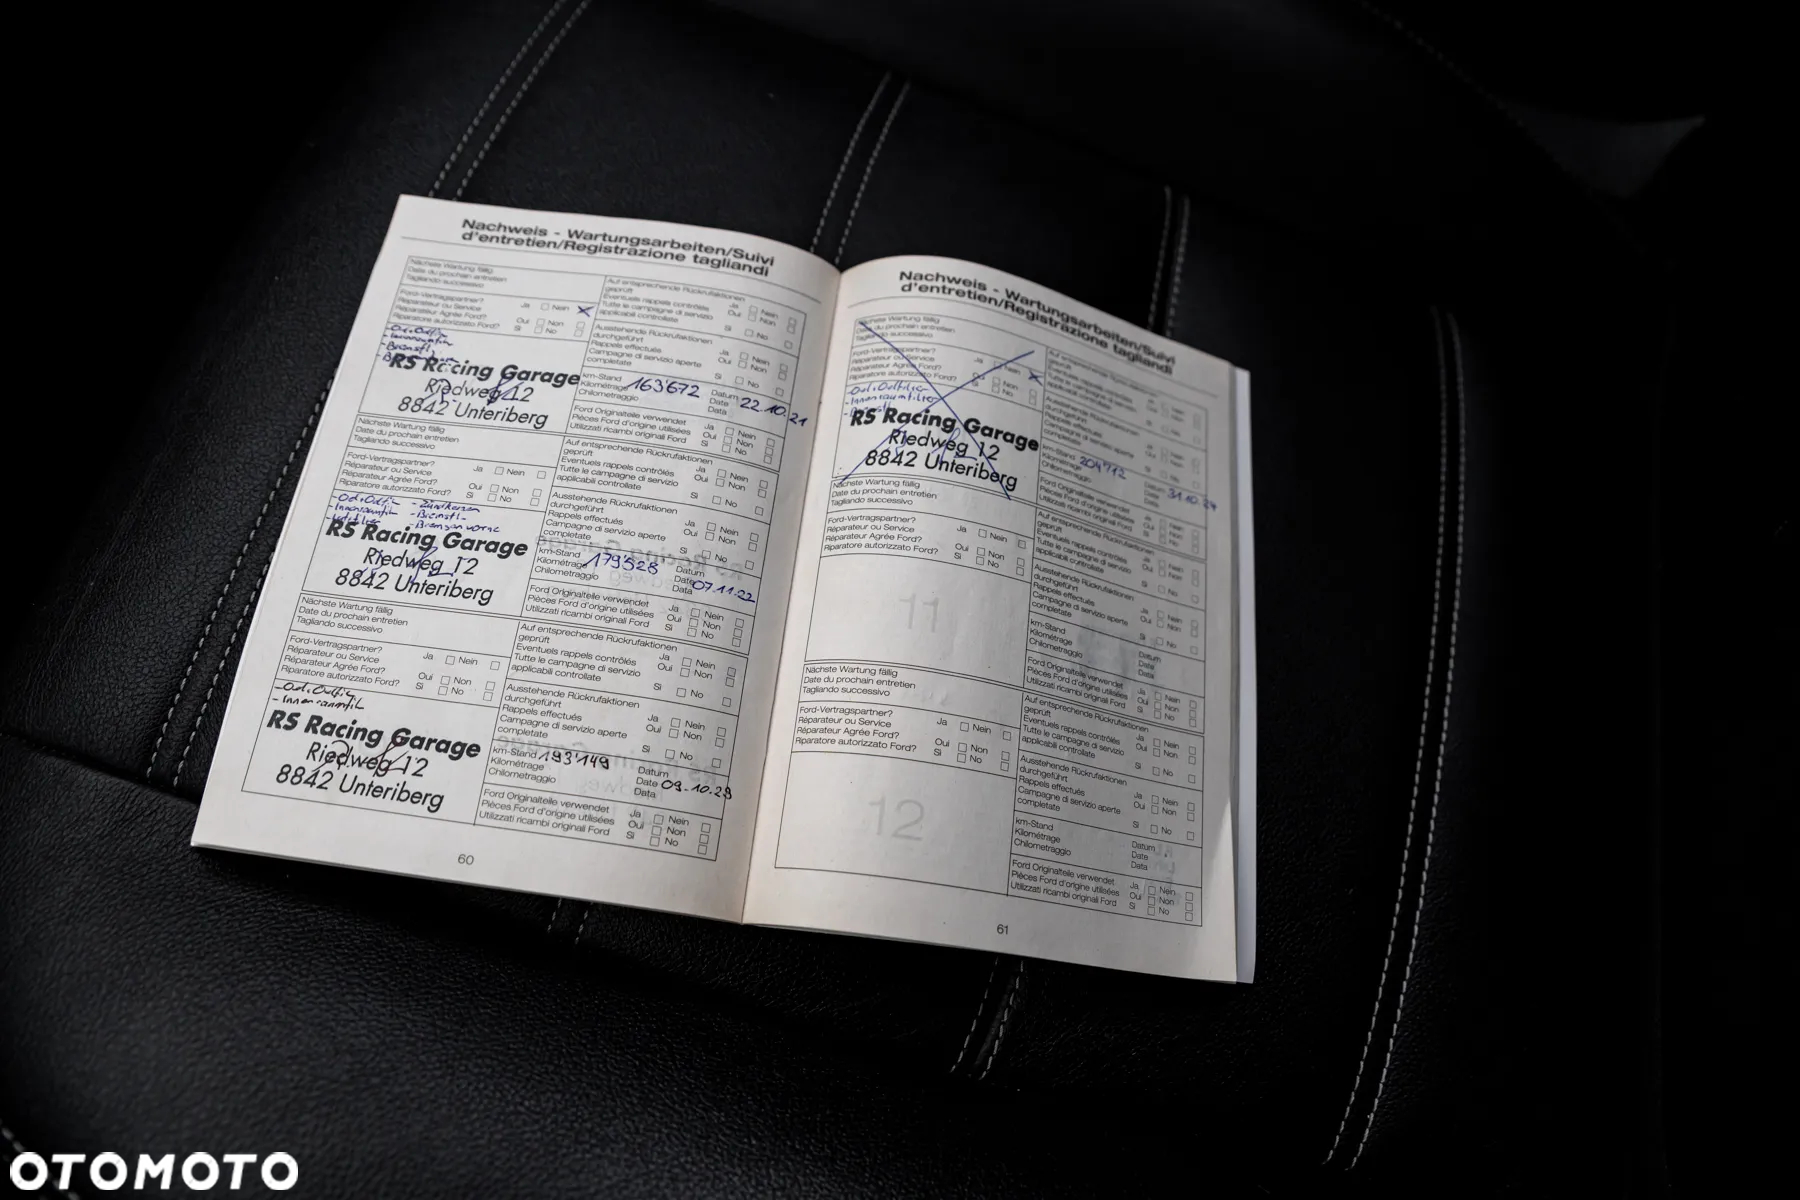 Nachweis - Wartungsarbeiten/Suivi
d'entretien/Registrazione tagliandi
Nächste Wartung fällig
Date du prochain entretien
Tagliando successivo
Ford-Vertragspartner?
Réparateur ou Service
Réparateur Agrée Ford?
Riparatore autorizzato Ford?
Ja Nein
Oui Non
Si No
- Öl.Ölfilt
- Innenraumfilt
- Bremsfl.
RS Racing Garage
Riedweg 12
8842 Unteriberg
Auf entsprechende Rückrufaktionen
geprüft
Eventuels rappels contrôlés
Tutte le campagne di servizio
applicabili controllate
Ja Nein
Oui Non
Si No
Ausstehende Rückrufaktionen
durchgeführt
Rappels effectués
Campagne di servizio aperte
completate
Ja Nein
Oui Non
Si No
km-Stand
Kilométrage
Chilometraggio
163'672
Datum
Date
Data
22.10.21
Ford Originalteile verwendet
Pièces Ford d'origine utilisées
Utilizzati ricambi originali Ford
Ja Nein
Oui Non
Si No
Nächste Wartung fällig
Date du prochain entretien
Tagliando successivo
Ford-Vertragspartner?
Réparateur ou Service
Réparateur Agrée Ford?
Riparatore autorizzato Ford?
Ja Nein
Oui Non
Si No
- Öl.Ölfilt - Zündkerzen
- Innenraumfilt - Bremsfl.
- Luftfilter - Bremsen vorne
RS Racing Garage
Riedweg 12
8842 Unteriberg
Auf entsprechende Rückrufaktionen
geprüft
Eventuels rappels contrôlés
Tutte le campagne di servizio
applicabili controllate
Ja Nein
Oui Non
Si No
Ausstehende Rückrufaktionen
durchgeführt
Rappels effectués
Campagne di servizio aperte
completate
Ja Nein
Oui Non
Si No
km-Stand
Kilométrage
Chilometraggio
179'528
Datum
Date
Data
07.11.22
Ford Originalteile verwendet
Pièces Ford d'origine utilisées
Utilizzati ricambi originali Ford
Ja Nein
Oui Non
Si No
Nächste Wartung fällig
Date du prochain entretien
Tagliando successivo
Ford-Vertragspartner?
Réparateur ou Service
Réparateur Agrée Ford?
Riparatore autorizzato Ford?
Ja Nein
Oui Non
Si No
- Öl.Ölfilt
- Innenraumfilt
RS Racing Garage
Riedweg 12
8842 Unteriberg
Auf entsprechende Rückrufaktionen
geprüft
Eventuels rappels contrôlés
Tutte le campagne di servizio
applicabili controllate
Ja Nein
Oui Non
Si No
Ausstehende Rückrufaktionen
durchgeführt
Rappels effectués
Campagne di servizio aperte
completate
Ja Nein
Oui Non
Si No
km-Stand
Kilométrage
Chilometraggio
193'149
Datum
Date
Data
09.10.23
Ford Originalteile verwendet
Pièces Ford d'origine utilisées
Utilizzati ricambi originali Ford
Ja Nein
Oui Non
Si No
60
Nachweis - Wartungsarbeiten/Suivi
d'entretien/Registrazione tagliandi
Nächste Wartung fällig
Date du prochain entretien
Tagliando successivo
Ford-Vertragspartner?
Réparateur ou Service
Réparateur Agrée Ford?
Riparatore autorizzato Ford?
Ja Nein
Oui Non
Si No
- Öl.Ölfilter
- Innenraumfilter
- Bremsfl.
RS Racing Garage
Riedweg 12
8842 Unteriberg
Auf entsprechende Rückrufaktionen
geprüft
Eventuels rappels contrôlés
Tutte le campagne di servizio
applicabili controllate
Ja Nein
Oui Non
Si No
Ausstehende Rückrufaktionen
durchgeführt
Rappels effectués
Campagne di servizio aperte
completate
Ja Nein
Oui Non
Si No
km-Stand
Kilométrage
Chilometraggio
204'712
Datum
Date
Data
31.10.24
Ford Originalteile verwendet
Pièces Ford d'origine utilisées
Utilizzati ricambi originali Ford
Ja Nein
Oui Non
Si No
Nächste Wartung fällig
Date du prochain entretien
Tagliando successivo
Ford-Vertragspartner?
Réparateur ou Service
Réparateur Agrée Ford?
Riparatore autorizzato Ford?
Ja Nein
Oui Non
Si No
11
Auf entsprechende Rückrufaktionen
geprüft
Eventuels rappels contrôlés
Tutte le campagne di servizio
applicabili controllate
Ja Nein
Oui Non
Si No
Ausstehende Rückrufaktionen
durchgeführt
Rappels effectués
Campagne di servizio aperte
completate
Ja Nein
Oui Non
Si No
km-Stand
Kilométrage
Chilometraggio
Datum
Date
Data
Ford Originalteile verwendet
Pièces Ford d'origine utilisées
Utilizzati ricambi originali Ford
Ja Nein
Oui Non
Si No
Nächste Wartung fällig
Date du prochain entretien
Tagliando successivo
Ford-Vertragspartner?
Réparateur ou Service
Réparateur Agrée Ford?
Riparatore autorizzato Ford?
Ja Nein
Oui Non
Si No
12
Auf entsprechende Rückrufaktionen
geprüft
Eventuels rappels contrôlés
Tutte le campagne di servizio
applicabili controllate
Ja Nein
Oui Non
Si No
Ausstehende Rückrufaktionen
durchgeführt
Rappels effectués
Campagne di servizio aperte
completate
Ja Nein
Oui Non
Si No
km-Stand
Kilométrage
Chilometraggio
Datum
Date
Data
Ford Originalteile verwendet
Pièces Ford d'origine utilisées
Utilizzati ricambi originali Ford
Ja Nein
Oui Non
Si No
61
OTOMOTO